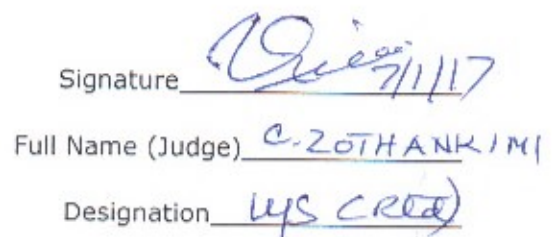 Signature 7/1/17
Full Name (Judge) C. ZOTHANKIMI
Designation U/S (Retd)